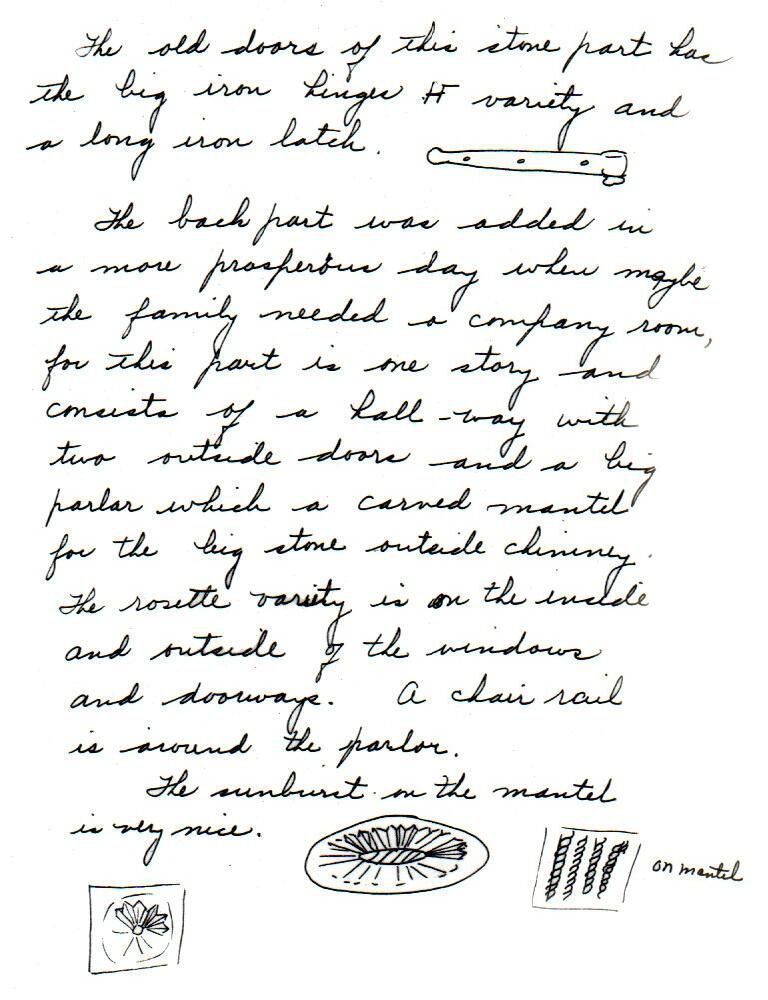 The old doors of this stone part has
the big iron hinges H variety and
a long iron latch.
The back part was added in
a more prosperous day when maybe
the family needed a company room,
for this part is one story and
consists of a hall-way with
two outside doors and a big
parlar which a carved mantel
for the big stone outside chimney.
The rosette variety is on the inside
and outside of the windows
and doorways. A chair rail
is around the parlor.
The sunburst on the mantel
is very nice.
on mantel